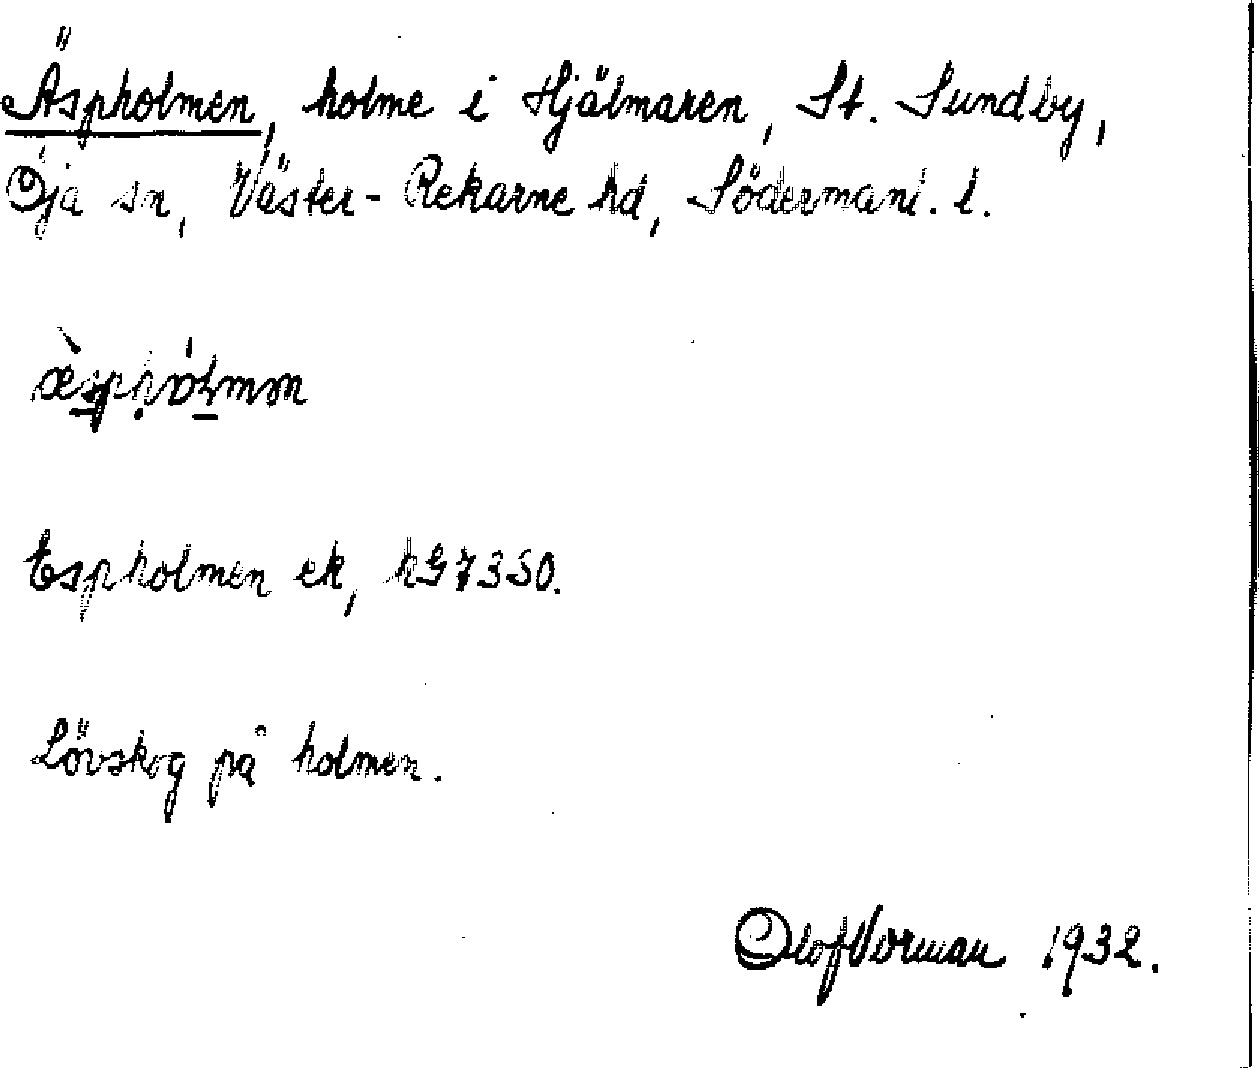 Äspholmen, holme i Hjälmaren, St. Sundby,
Öja sn, Väster-Rekarne hd, Södermanl. l.
Espholmen ek, hG7350.
Lövskog på holmen.
Olof Vorman 1932.